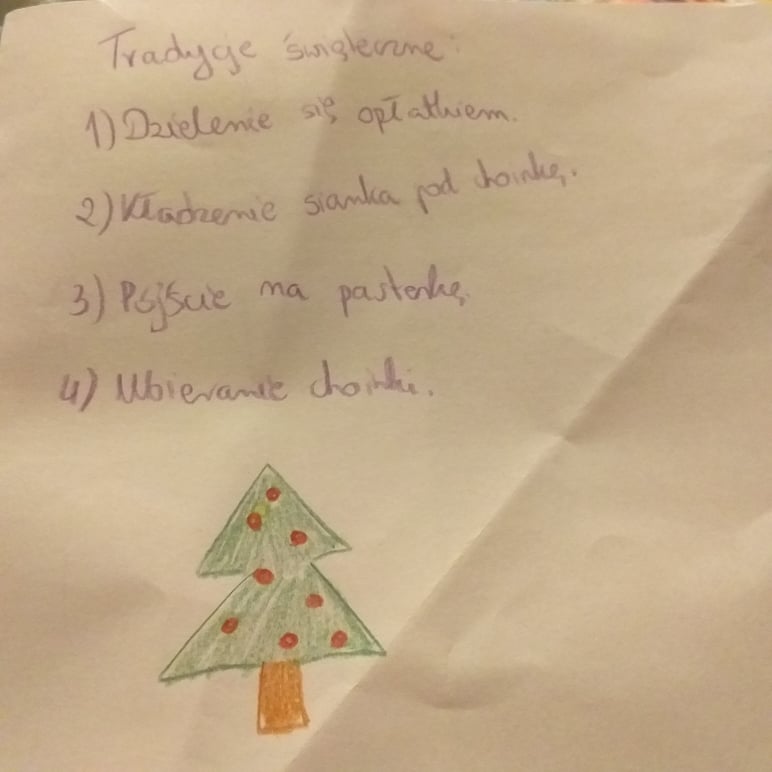 Tradycje świąteczne:
1) Dzielenie się opłatkiem.
2) Kładzenie sianka pod choinkę.
3) Pójście na pasterkę.
4) Ubieranie choinki.